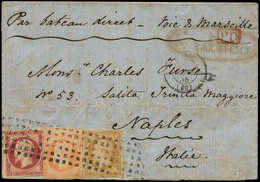 Par bateau direct - Voie de Marseille
Mons. Charles Furse
No 53. Salita Trinità Maggiore
Naples
Italie